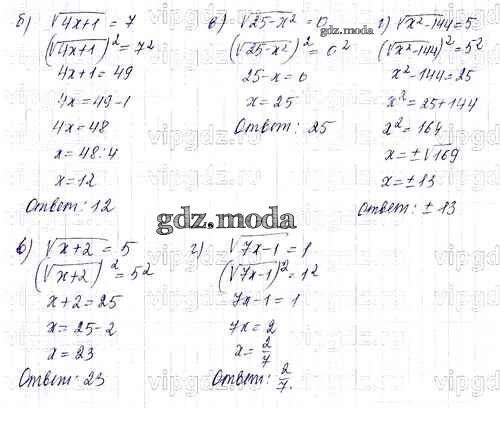 б) √4x+1 = 7
(√4x+1)² = 7²
4x+1 = 49
4x = 49-1
4x = 48
x = 48:4
x = 12
Ответ: 12
в) √25-x² = 0
(√25-x²)² = 0²
25-x = 0
x = 25
Ответ: 25
г) √x²-144 = 5
(√x²-144)² = 5²
x²-144 = 25
x² = 25+144
x² = 164
x = ±√169
x = ±13
Ответ: ±13
gdz.moda
gdz.moda
в) √x+2 = 5
(√x+2)² = 5²
x+2 = 25
x = 25-2
x = 23
Ответ: 23
г) √7x-1 = 1
(√7x-1)² = 1²
7x-1 = 1
7x = 2
x = 2/7
Ответ: 2/7.